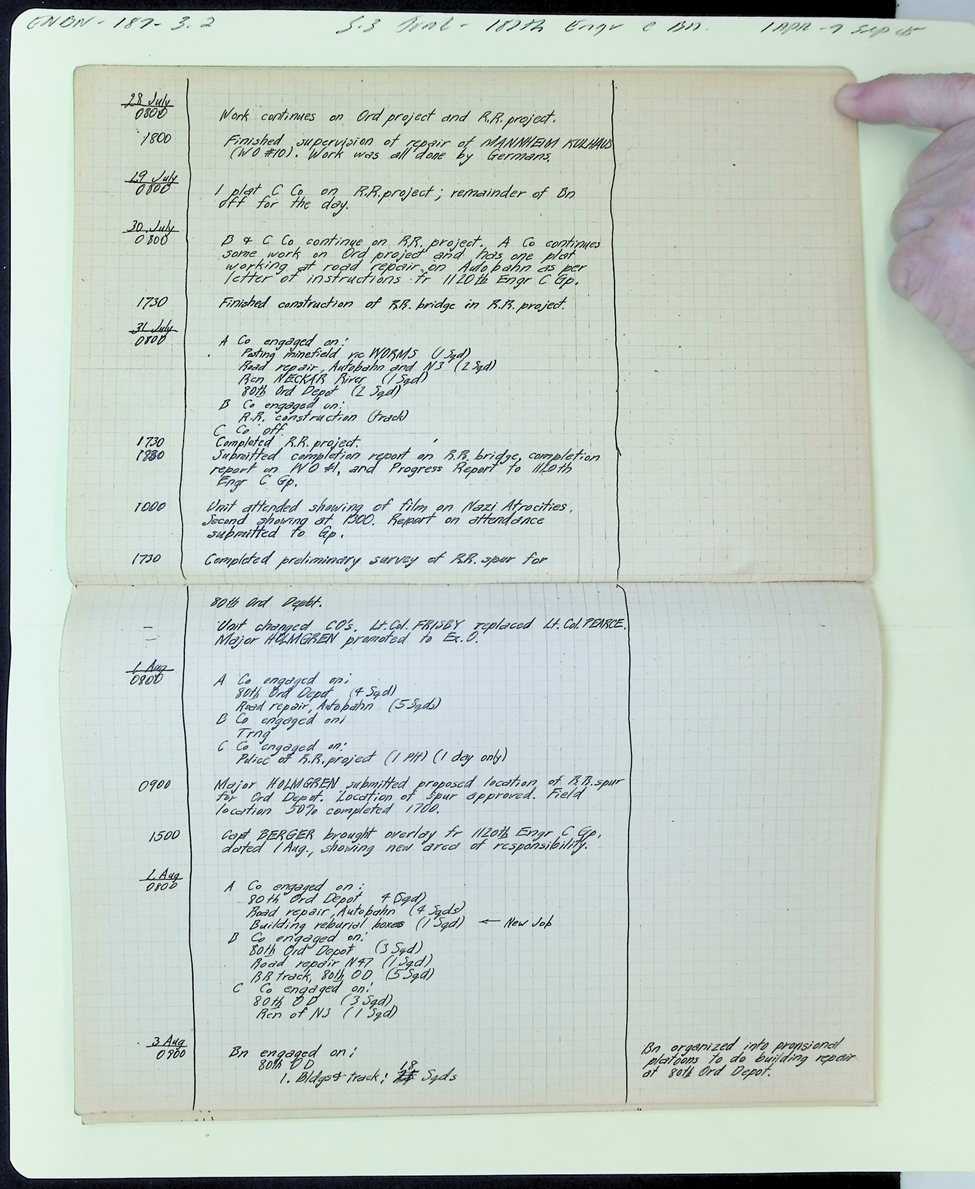 ENBN - 187 - 3.2 S-3 Jrnl - 187th Engr C Bn. 1 APR - 9 Sep 45
28 July
0800 Work continues on Ord project and R.R. project.
1800 Finished supervision of repair of MANNHEIM KULHAUS
(WO #10). Work was all done by Germans.
29 July
0800 1 plat C Co on R.R. project; remainder of Bn
off for the day.
30 July
0800 B & C Co continue on R.R. project. A Co continues
some work on Ord project and has one plat
working at road repair on Autobahn as per
letter of instructions fr 1120th Engr C Gp.
1730 Finished construction of R.R. bridge in R.R. project.
31 July
0800 A Co engaged on:
Posting minefield vic WORMS (1 Sqd)
Road repair, Autobahn and N3 (2 Sqd)
Rcn NECKAR River (1 Sqd)
80th Ord Depot (2 Sqd)
B Co engaged on:
R.R. construction (track)
C Co off
1730 Completed R.R. project.
1830 Submitted completion report on R.R. bridge, completion
report on WO #1, and Progress Report to 1120th
Engr C Gp.
1000 Unit attended showing of film on Nazi Atrocities.
Second showing at 1300. Report on attendance
submitted to Gp.
1730 Completed preliminary survey of R.R. spur for
80th Ord Depot.
— Unit changed CO's. Lt. Col. FRISBY replaced Lt. Col. PEARCE.
— Major HOLMGREN promoted to Ex. O.
1 Aug
0800 A Co engaged on:
80th Ord Depot (4 Sqd)
Road repair, Autobahn (5 Sqds)
B Co engaged on:
Trng
C Co engaged on:
Police of R.R. project (1 Plt) (1 day only)
0900 Major HOLMGREN submitted proposed location of R.R. spur
for Ord Depot. Location of spur approved. Field
location 50% completed 1700.
1500 Capt BERGER brought overlay fr 1120th Engr C Gp.
dated 1 Aug., showing new area of responsibility.
2 Aug
0800 A Co engaged on:
80th Ord Depot 4 Sqd)
Road repair, Autobahn (4 Sqds)
Building reburial boxes (1 Sqd) ← New Job
B Co engaged on:
80th Ord Depot (3 Sqd)
Road repair N47 (1 Sqd)
RR track, 80th OD (5 Sqd)
C Co engaged on:
80th OD (3 Sqd)
Rcn of N3 (1 Sqd)
3 Aug
0900 Bn engaged on:
80th OD
1. Bldgs & track: 18 Sqds
Bn organized into provisional
platoons to do building repair
at 80th Ord Depot.